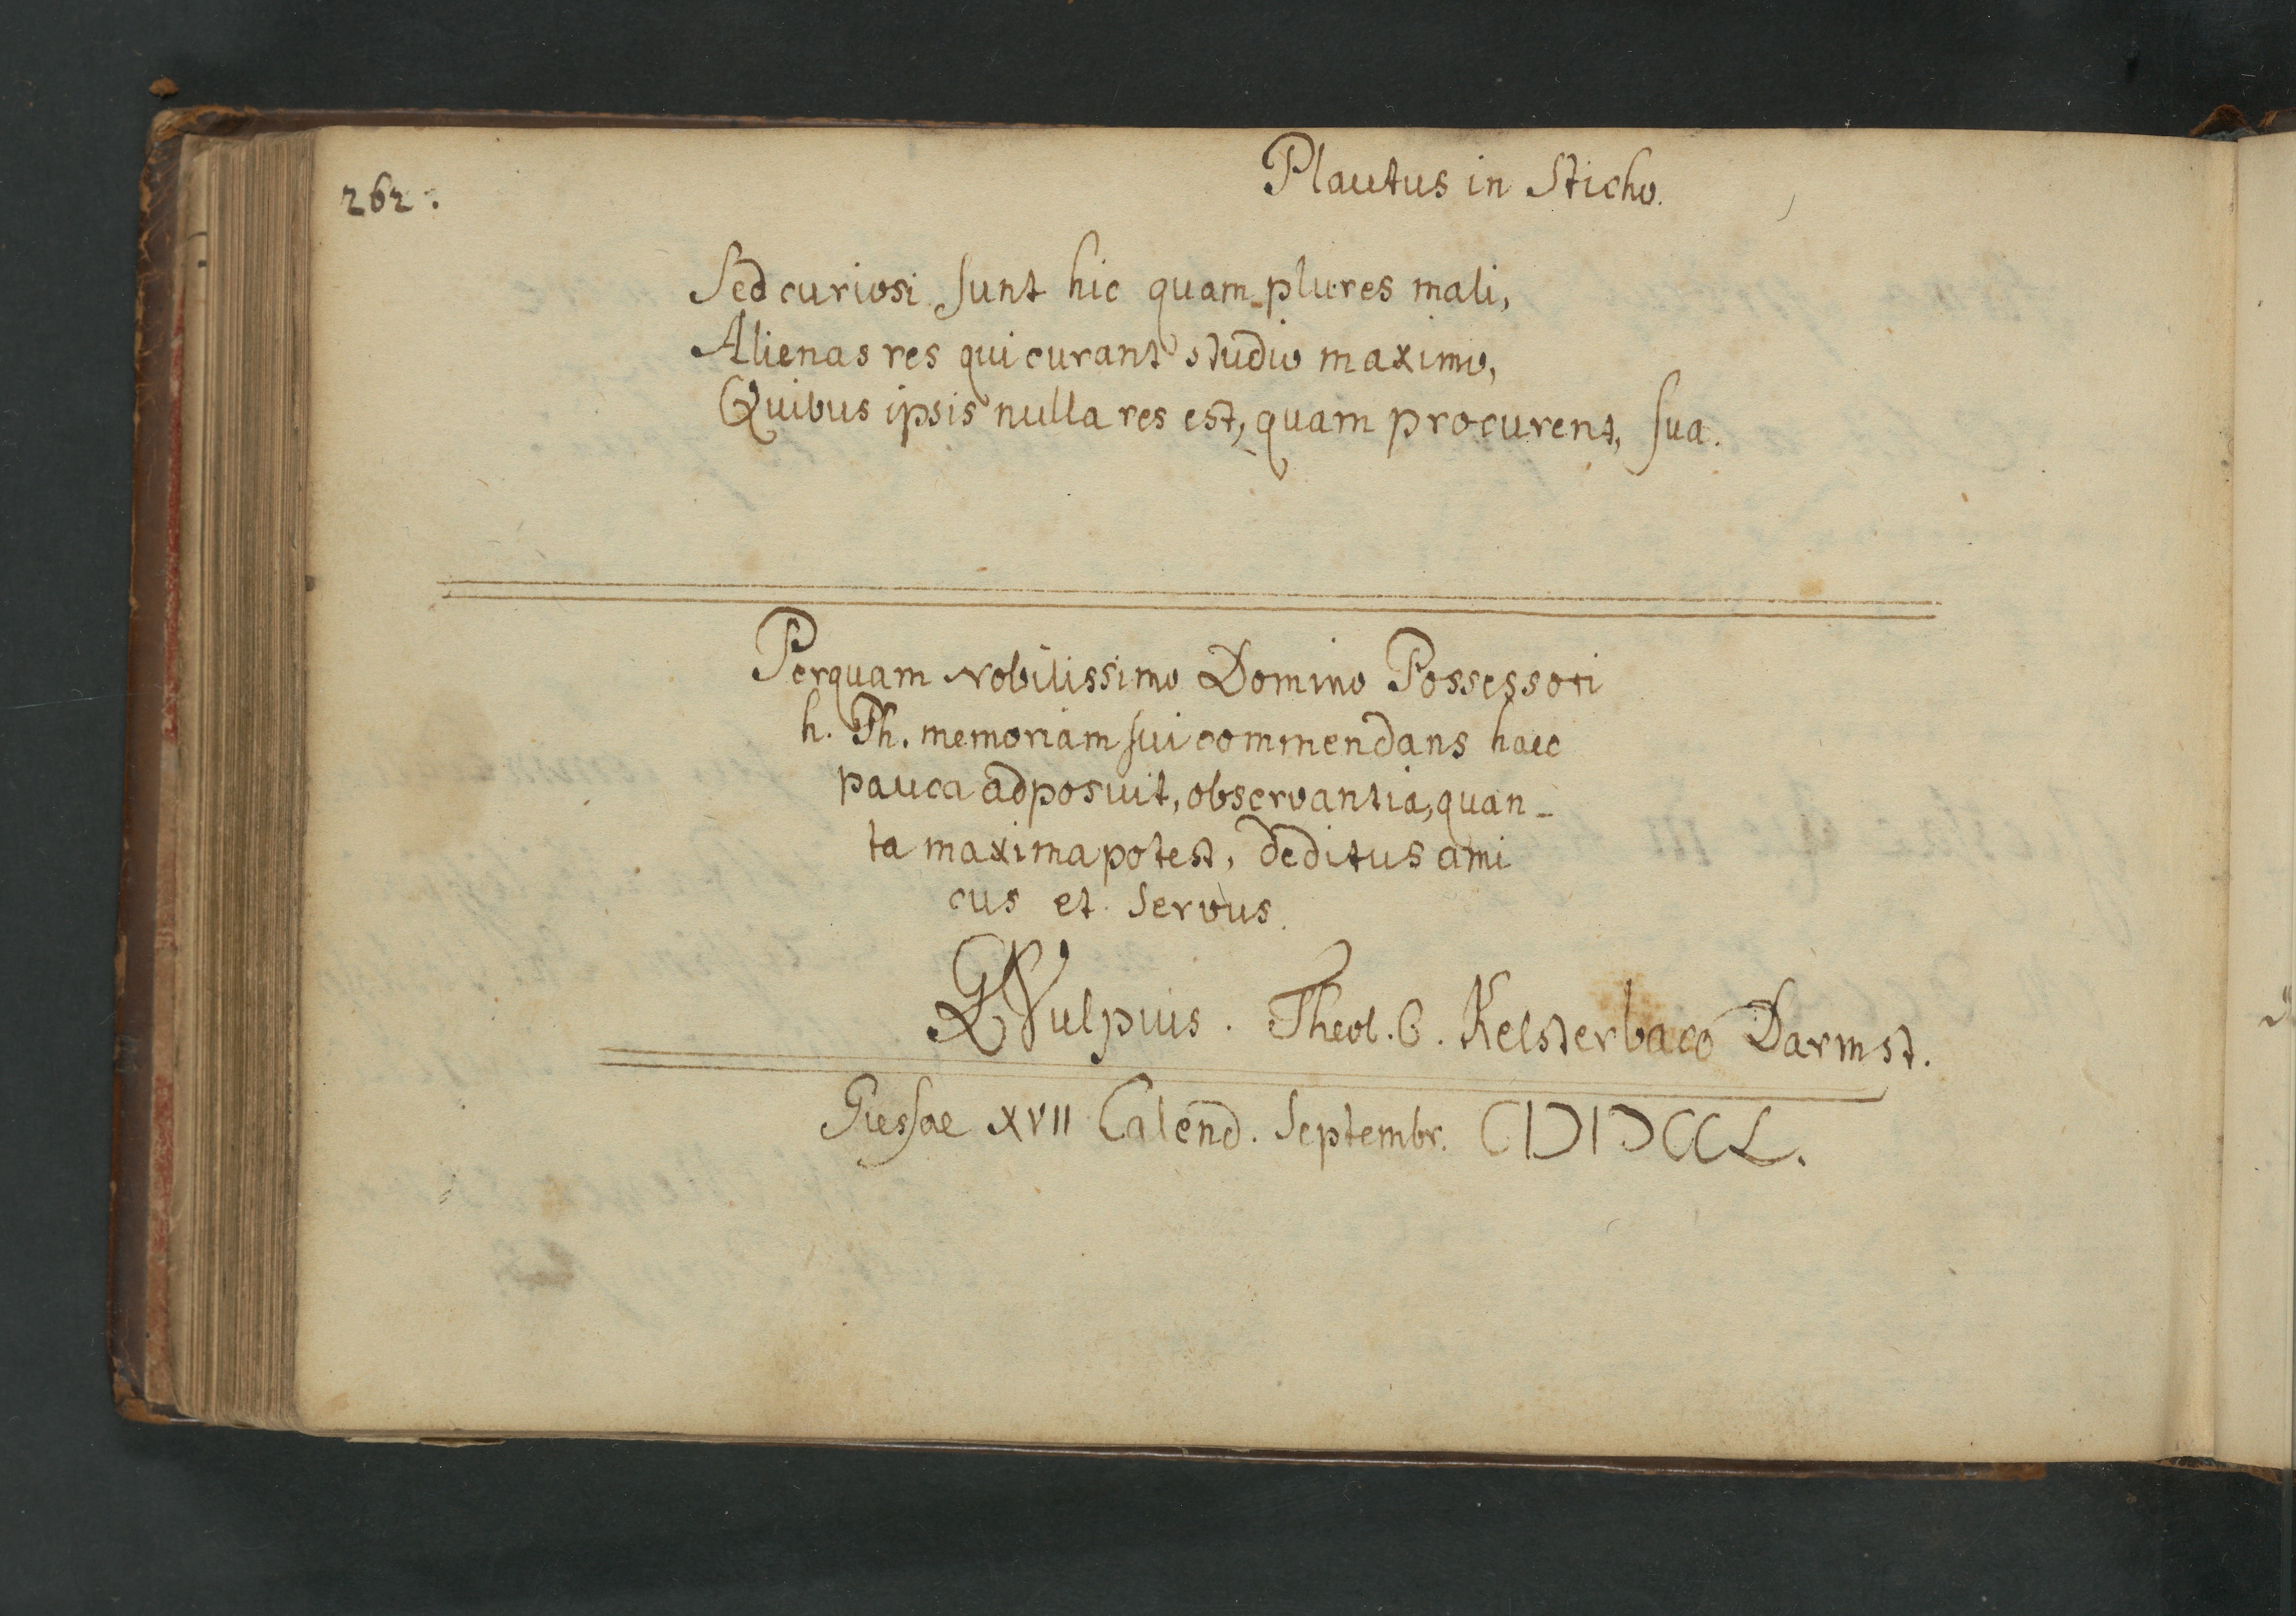 262.
Plautus in Sticho.
Sed curiosi sunt hic quam plures mali,
Alienas res qui curant studio maximo,
Quibus ipsis nulla res est, quam procurent, sua.
Perquam Nobilissimo Domino Possessori
h. Th. memoriam sui commendans haec
pauca adposuit, observantia, quan-
ta maxima potest, deditus ami
cus et servus.
Vulpius. Theol. C. Kelsterbaco Darmst.
Giessae XVII Calend. Septembr. CIƆIƆCCL.